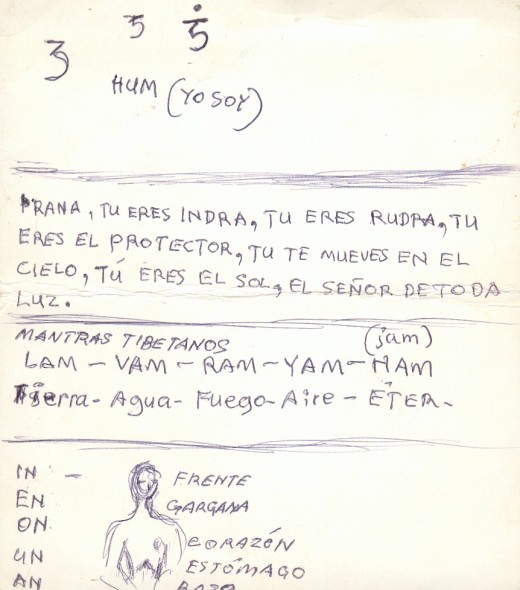 HUM (YO SOY)
PRANA, TU ERES INDRA, TU ERES RUDRA, TU
ERES EL PROTECTOR, TU TE MUEVES EN EL
CIELO, TÚ ERES EL SOL, EL SEÑOR DE TODA
LUZ.
MANTRAS TIBETANOS (jam)
LAM - VAM - RAM - YAM - HAM
Tierra - Agua - Fuego - Aire - ÉTER -
IN - FRENTE
EN GARGANA
ON CORAZÓN
UN ESTÓMAGO
AN BAZO